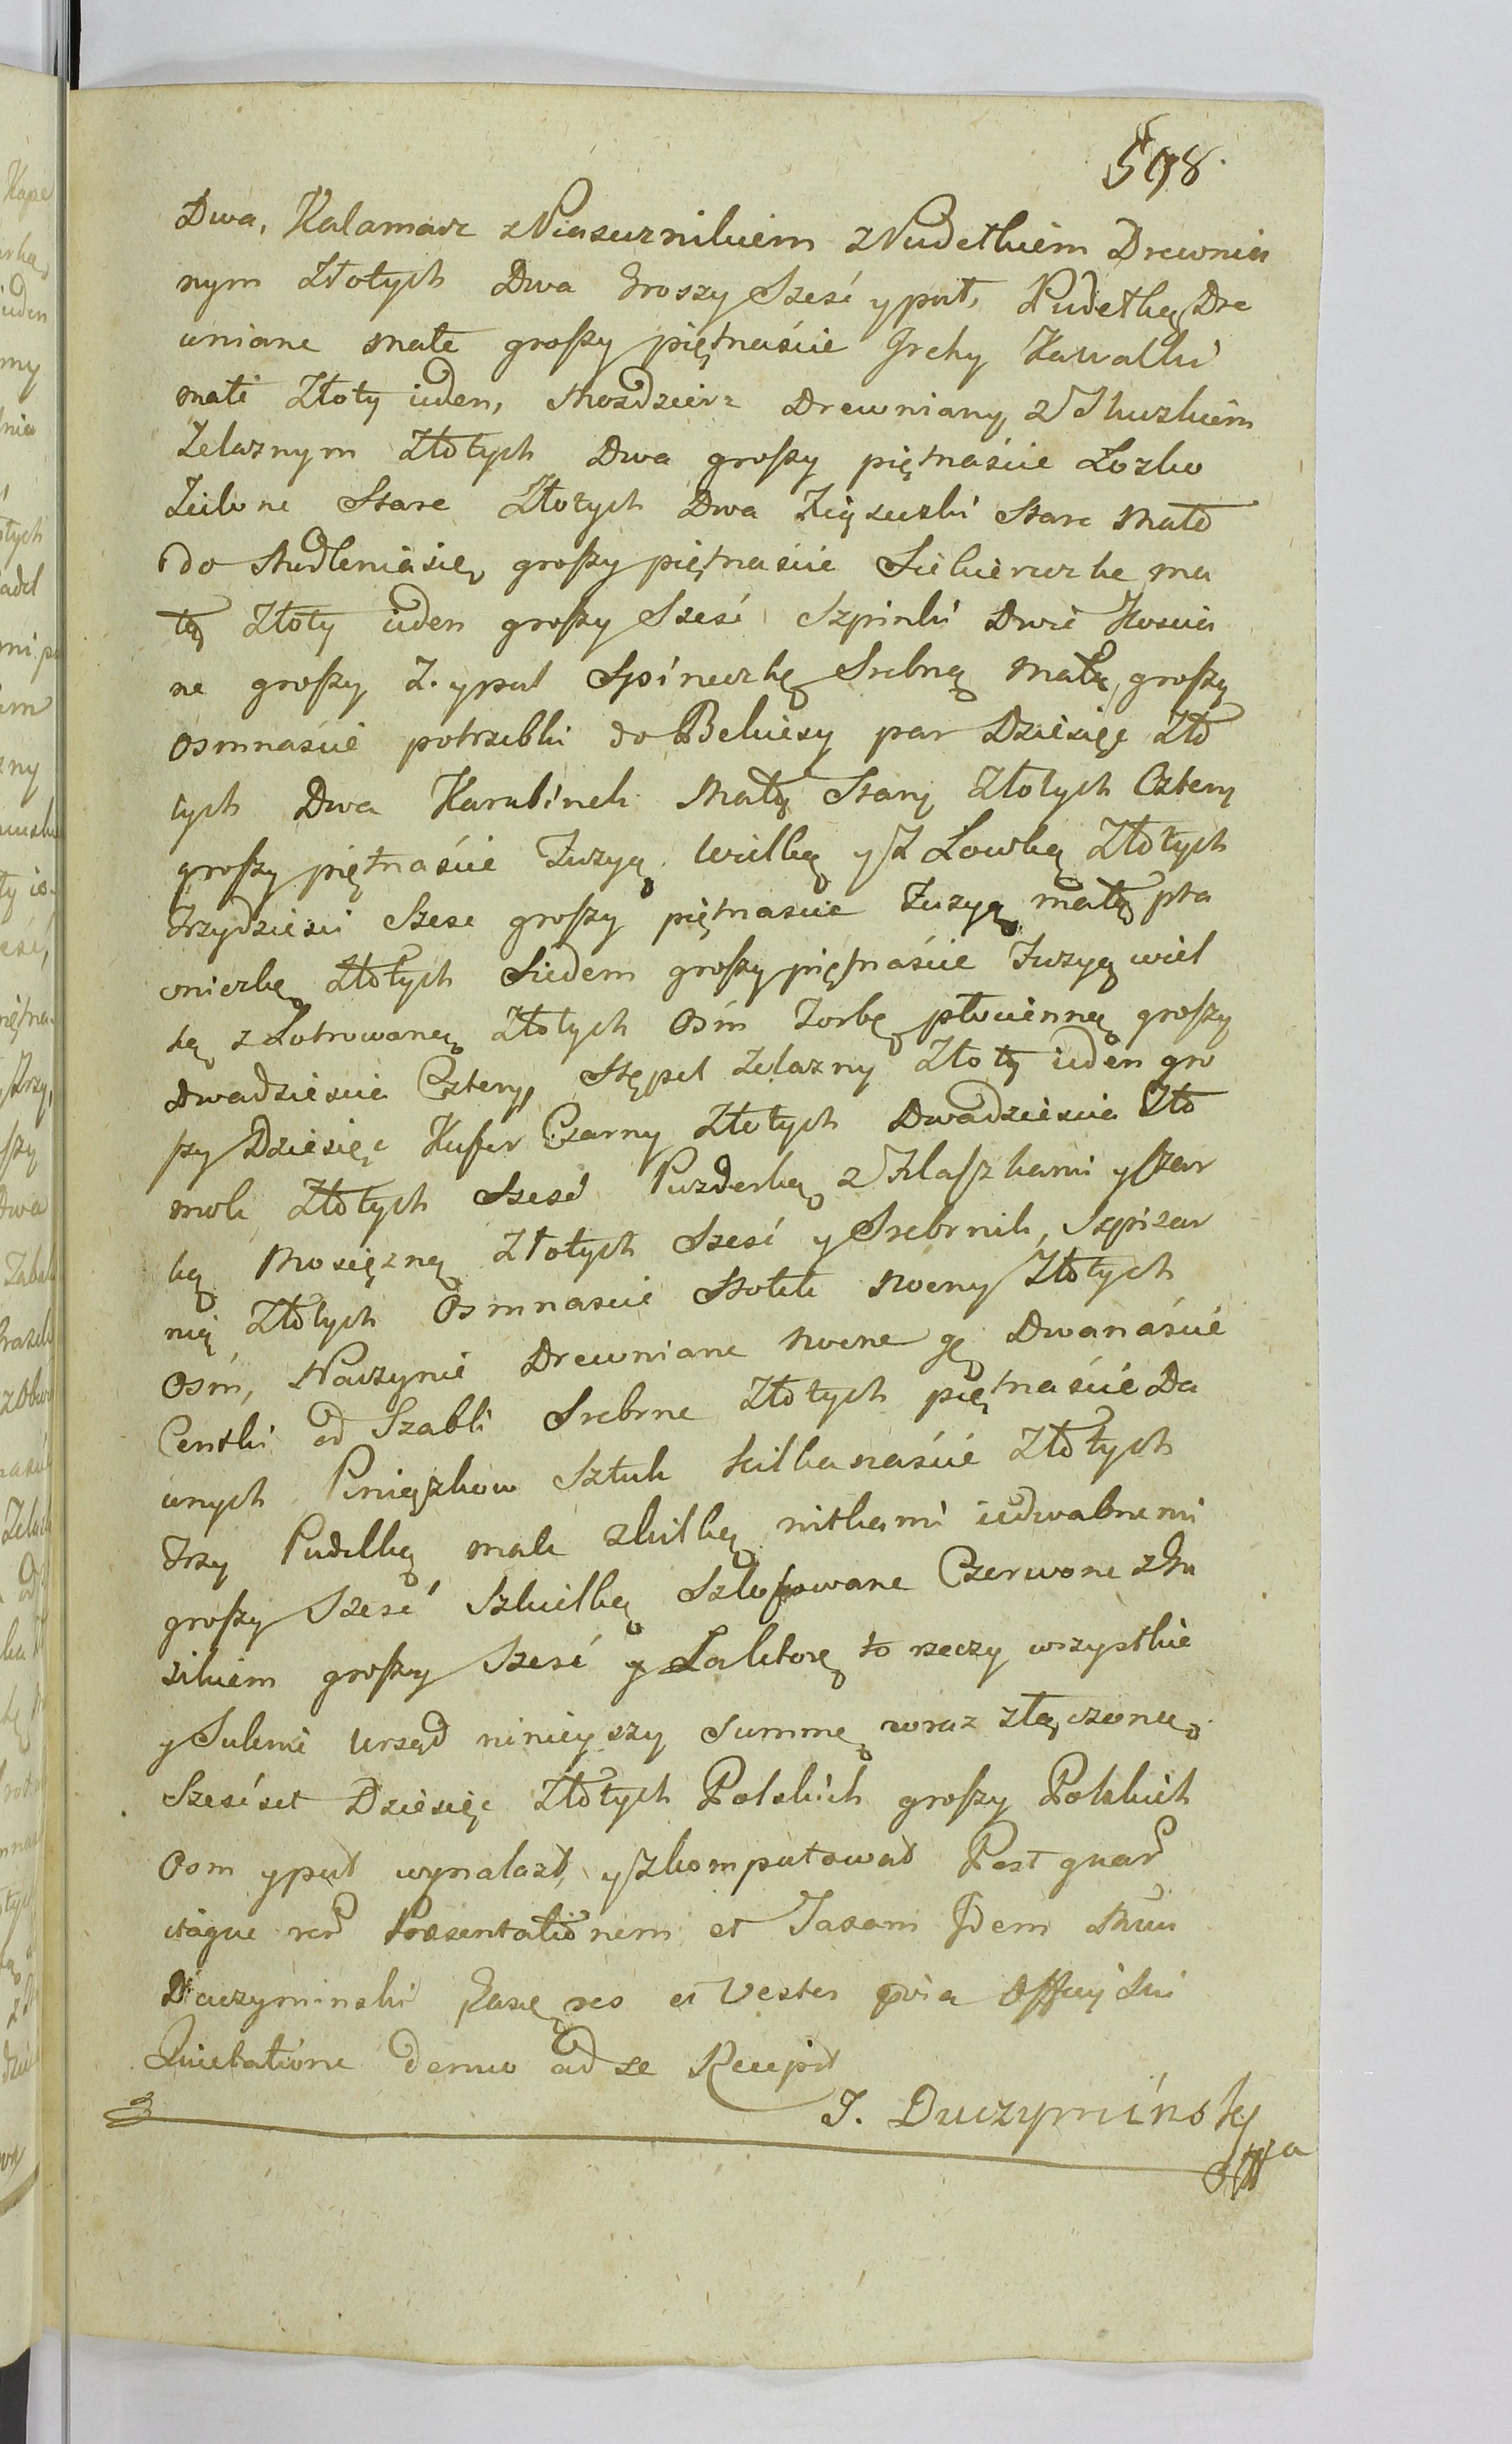 598.
Dwa, Kalamarz z Piasecznikiem z Pudełkiem Drewnia
nym Złotych Dwa Groszy Sześć y puł, Pudełką Dre
wniane małe groszy piętnaście Irchy Kawałki
małi Złoty ieden, Mozdzierz Drewniany z Tłuczkiem
Zelaznym Złotych Dwa groszy piętnaście Łozko
Zielone Stare Złotych Dwa Xiązeczki Stare Małe
do Modlenia się, groszy piętnaście Siekiereczke ma
łą Złoty ieden groszy Sześć Szpinki Dwie Koscia
ne groszy 7. y pul Spineczkę Srebną Małą, groszy
osmnaście potrzebki do Bekiesy par Dziesięc Zło
tych Dwa Karabinek Mały Stary Złotych Cztery
groszy piętnaście Fuzyą Wielką y Z Lowką Złotych
Trzydziesci Szesc groszy piętnascie Fuzyą małą pta
wniczką Złotych Siedem groszy piętnaście Fuzyą wiel
ką z Lotrowaną Złotych Osim Torbę płocienną groszy
Dwadziescia Cztery, Stępel Zelazny Złoty ieden gro
szy Dziesięc Kufer Czarny Złotych Dwadziescia Tło
mok Złotych Sześć Puzderką z Flaszkami y Szar
ką Mosięzną Złotych Sześć y Srebrnik,
nią Złotych Osmnascie Stołek Nocny Złotych
Osim, Naczynie Drewniane Nocne gr Dwanaście
Centki od Szabli Srebrne Złotych piętnaście Da
wnych Pieniązkow Sztuk kilkanaście Złotych
Trzy Pudełką małe z kilką nitkami iedwabnemi
groszy Sześć Szkiełką Szlofowane Czerwone z Gu
zikiem groszy Sześć y Za ktorę to rzeczy wszystkie
y Sukmi Urząd ninieyszy Summę wraz złączoną
Sześćset Dziesięc Złotych Polskich groszy Polskich
Osm y puł wynalazł, y Zkomputował Post quar
itaque rer Præsentationem et Taxam Idem
Duczyminski easq res et Vestes Officij Sui
Quietatione demio ad se Recepit
J. Duczymińsky